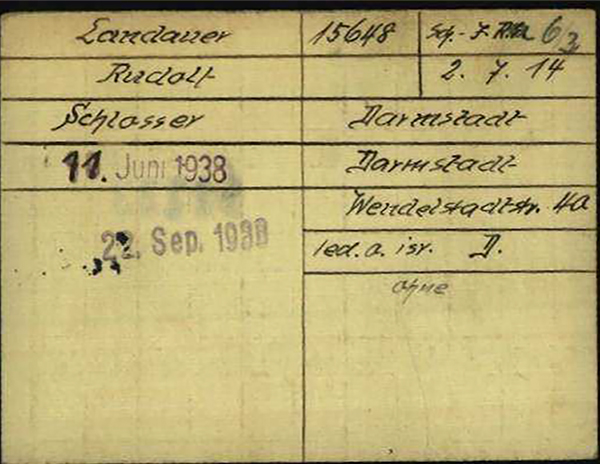 Landauer 15648 Sch.-J. 6
Rudolf 2. 7. 14
Schlosser Darmstadt
11. Juni 1938 Darmstadt
Wendelstadtstr. 40
22. Sep. 1938 led. a. isr. D.
ohne